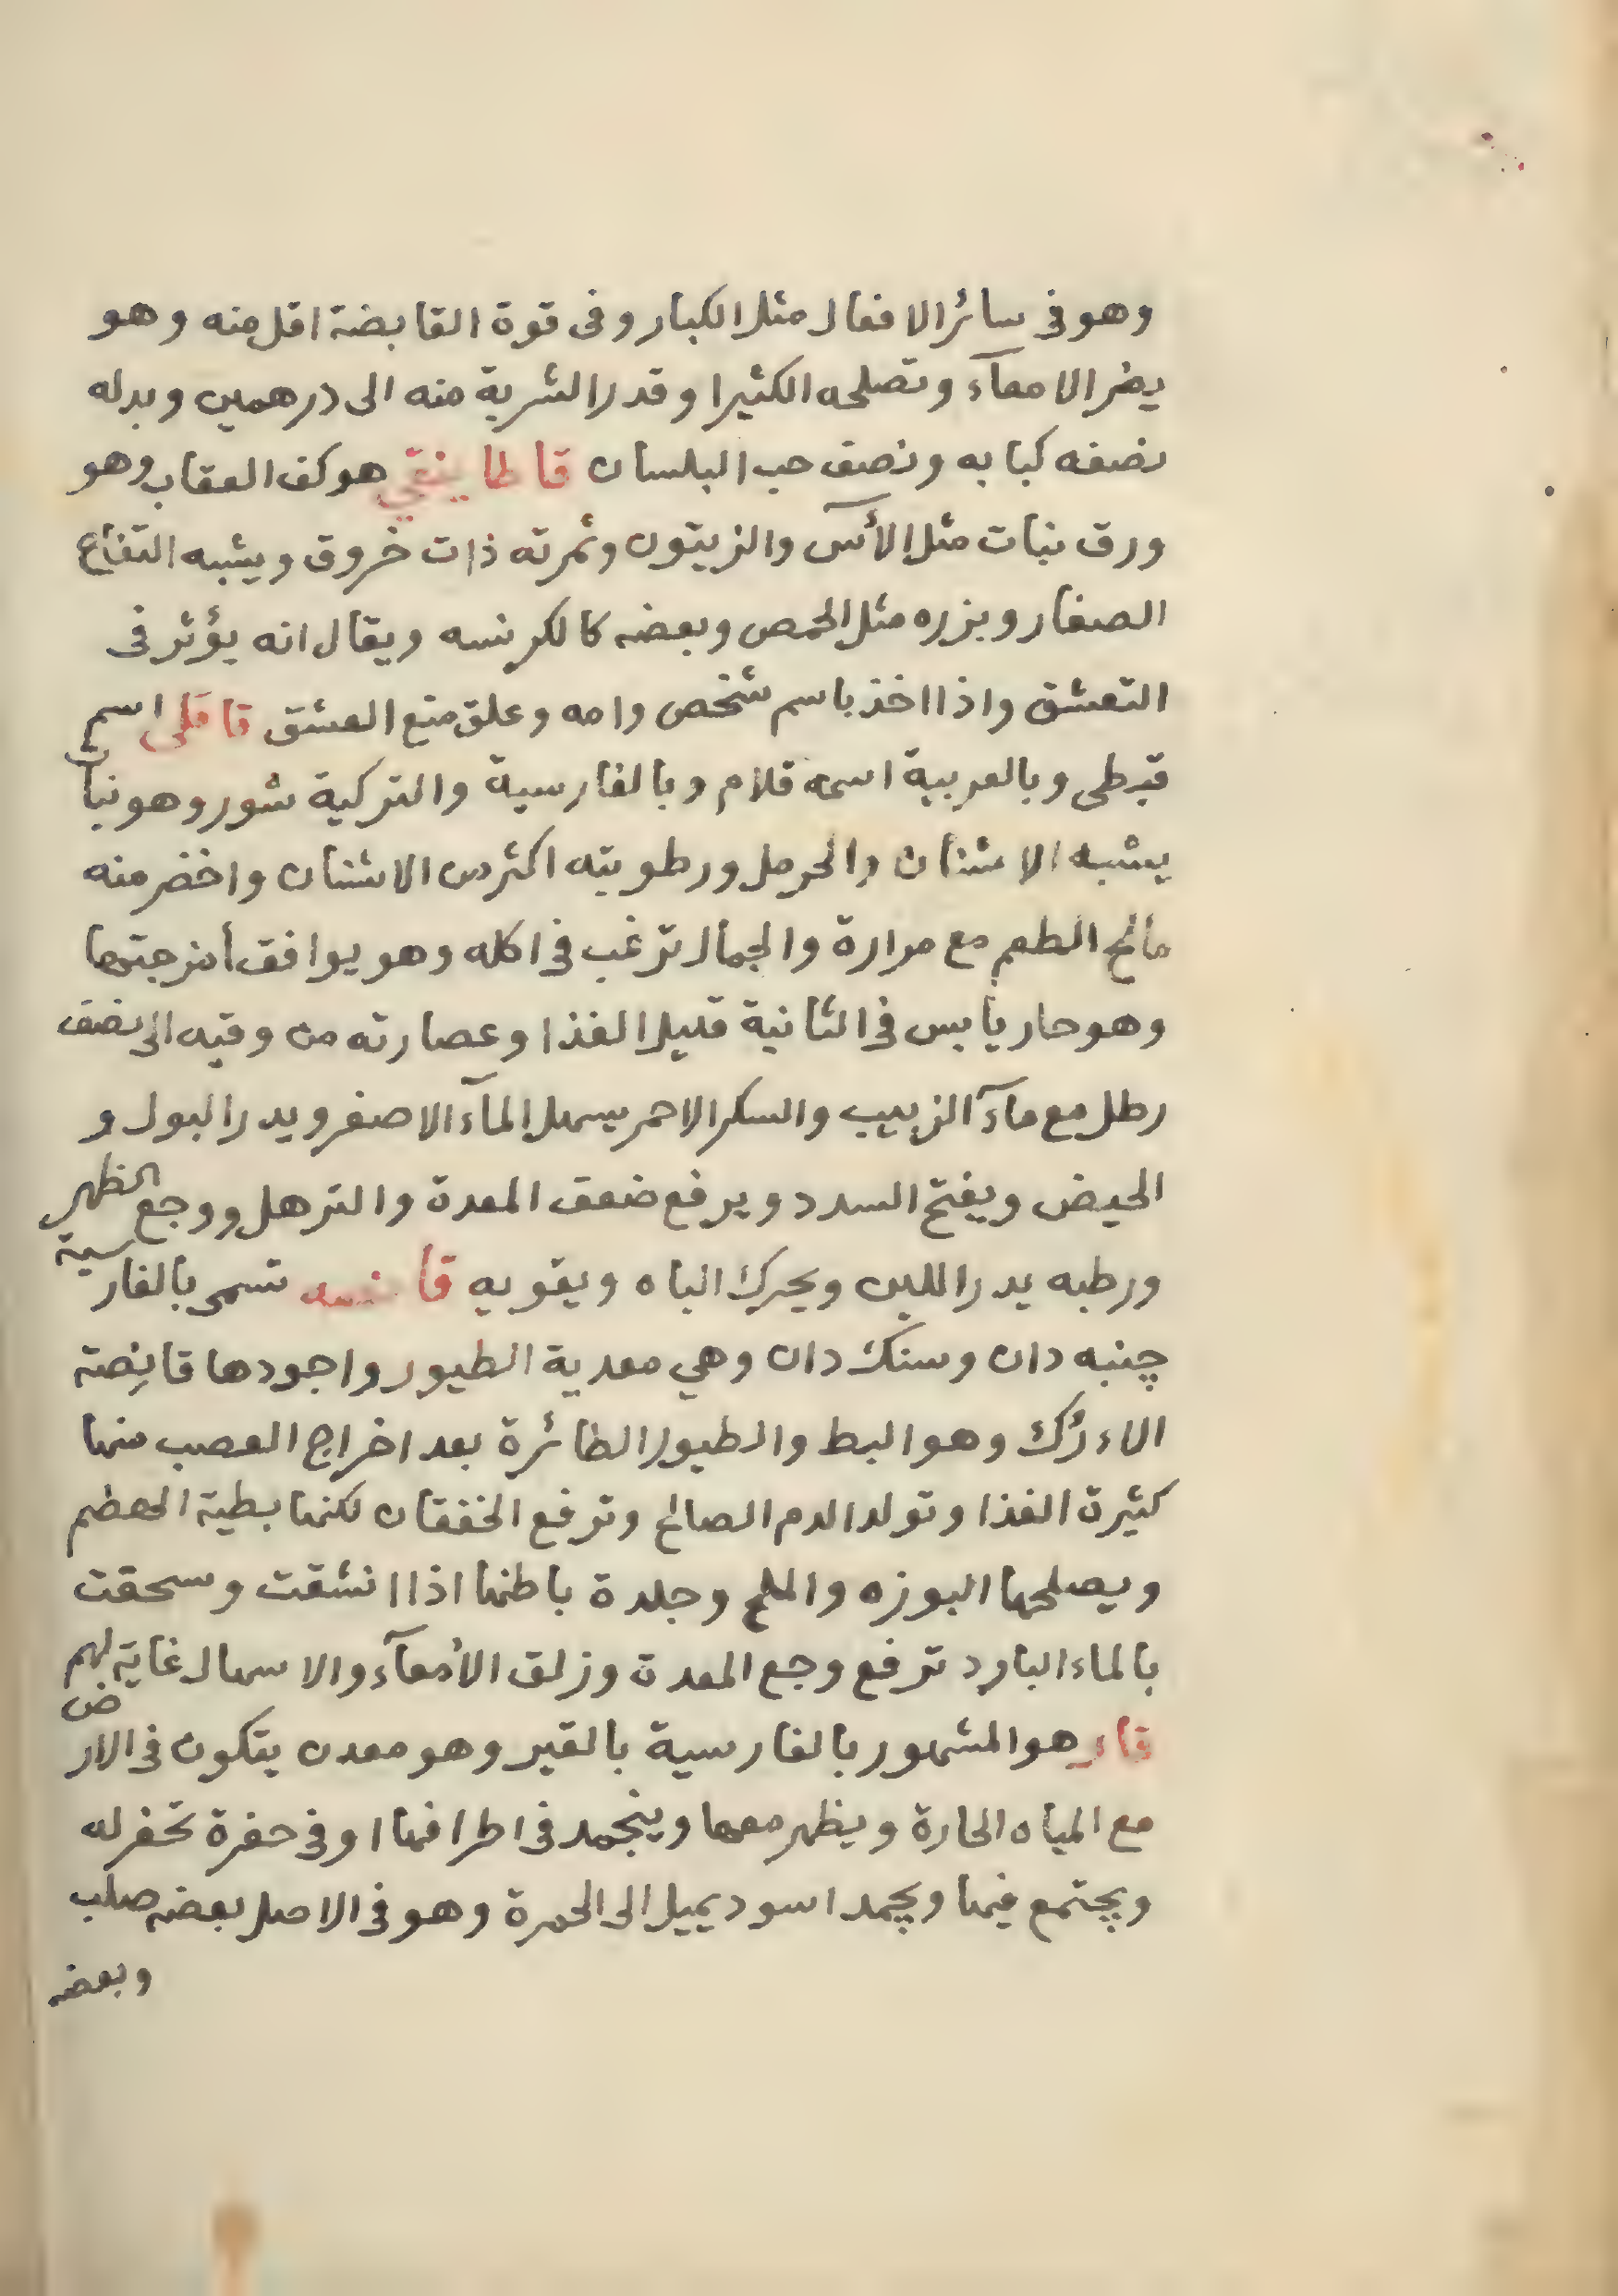 وهو في سائر الافعال مثل الكبار وفى قوة القابضة اقل منه وهو
يضر الامعآء وتصلحه الكثيرا وقدر الشربة منه الى درهمين وبدله
نصفه كبابه ونصف حب البلسان قاطاينقي هو كف العقاب وهو
ورق نبات مثل الأس والزيتون وثمرته ذات خروق ويشبه التفاح
الصغار وبزره مثل الحمص وبعضه كالكرنسه ويقال انه يؤثر فى
التعشق واذا اخذ باسم شخص وامه وعلق منع العشق قاقلى اسم
قبطى وبالعربية اسمه قلام وبالفارسية والتركية شور وهو نبات
يشبه الاشنان والحرمل ورطوبته اكثر من الاشنان واخضر منه
مالح الطعم مع مرارة والجمال ترغب في اكله وهو يوافق أمزجتها
وهو حار يابس في الثانية قليل الغذا وعصارته من وقيه الى نصف
رطل مع مآء الزبيب والسكر الاحمر يسهل المآء الاصفر ويدر البول و
الحيض ويفتح السدد ويرفع ضعف المعدة والترهل ووجع الظهر
ورطبه يدر اللبن ويحرك الباه ويقويه قانصه تسمى بالفارسية
چنبه دان وسنك دان وهي معدية الطيور واجودها قانِصة
الاءرْك وهو البط والطيور الطائرة بعد اخراج العصب منها
كثيرة الغذا وتولد الدم الصالح وترفع الخفقان لكنها بطية الهضم
ويصلحها البوزه والملح وجلدة باطنها اذا انشقت وسحقت
بالماء البارد ترفع وجع المعدة وزلق الأمعآء والاسهال غاية لهم
قار هو المشهور بالفارسية بالقير وهو معدن يتكون في الارض
مع المياه الحارة ويظهر معها وينجمد فى اطرافها او في حفرة تحفر له
ويجتمع فيها ويجمد اسود يميل الى الحمرة وهو في الاصل بعضه صلب
وبعضه